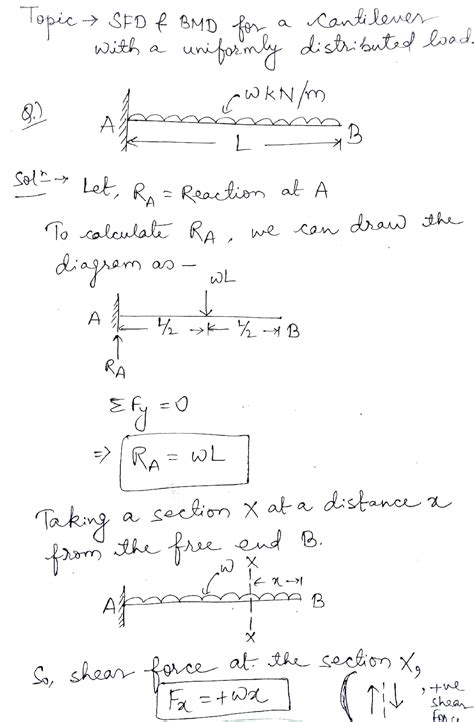 Topic → SFD & BMD for a Cantilever
with a uniformly distributed load.
Q.)
w kN/m
A
B
L
Solⁿ → Let, R_A = Reaction at A
To calculate R_A, we can draw the
diagram as —
wL
A
L/2
L/2
B
R_A
ΣFy = 0
⇒ R_A = wL
Taking a section X at a distance x
from the free end B.
w
X
x
A
B
X
So, shear force at the section X,
F_x = +wx
, +ve
shear
force